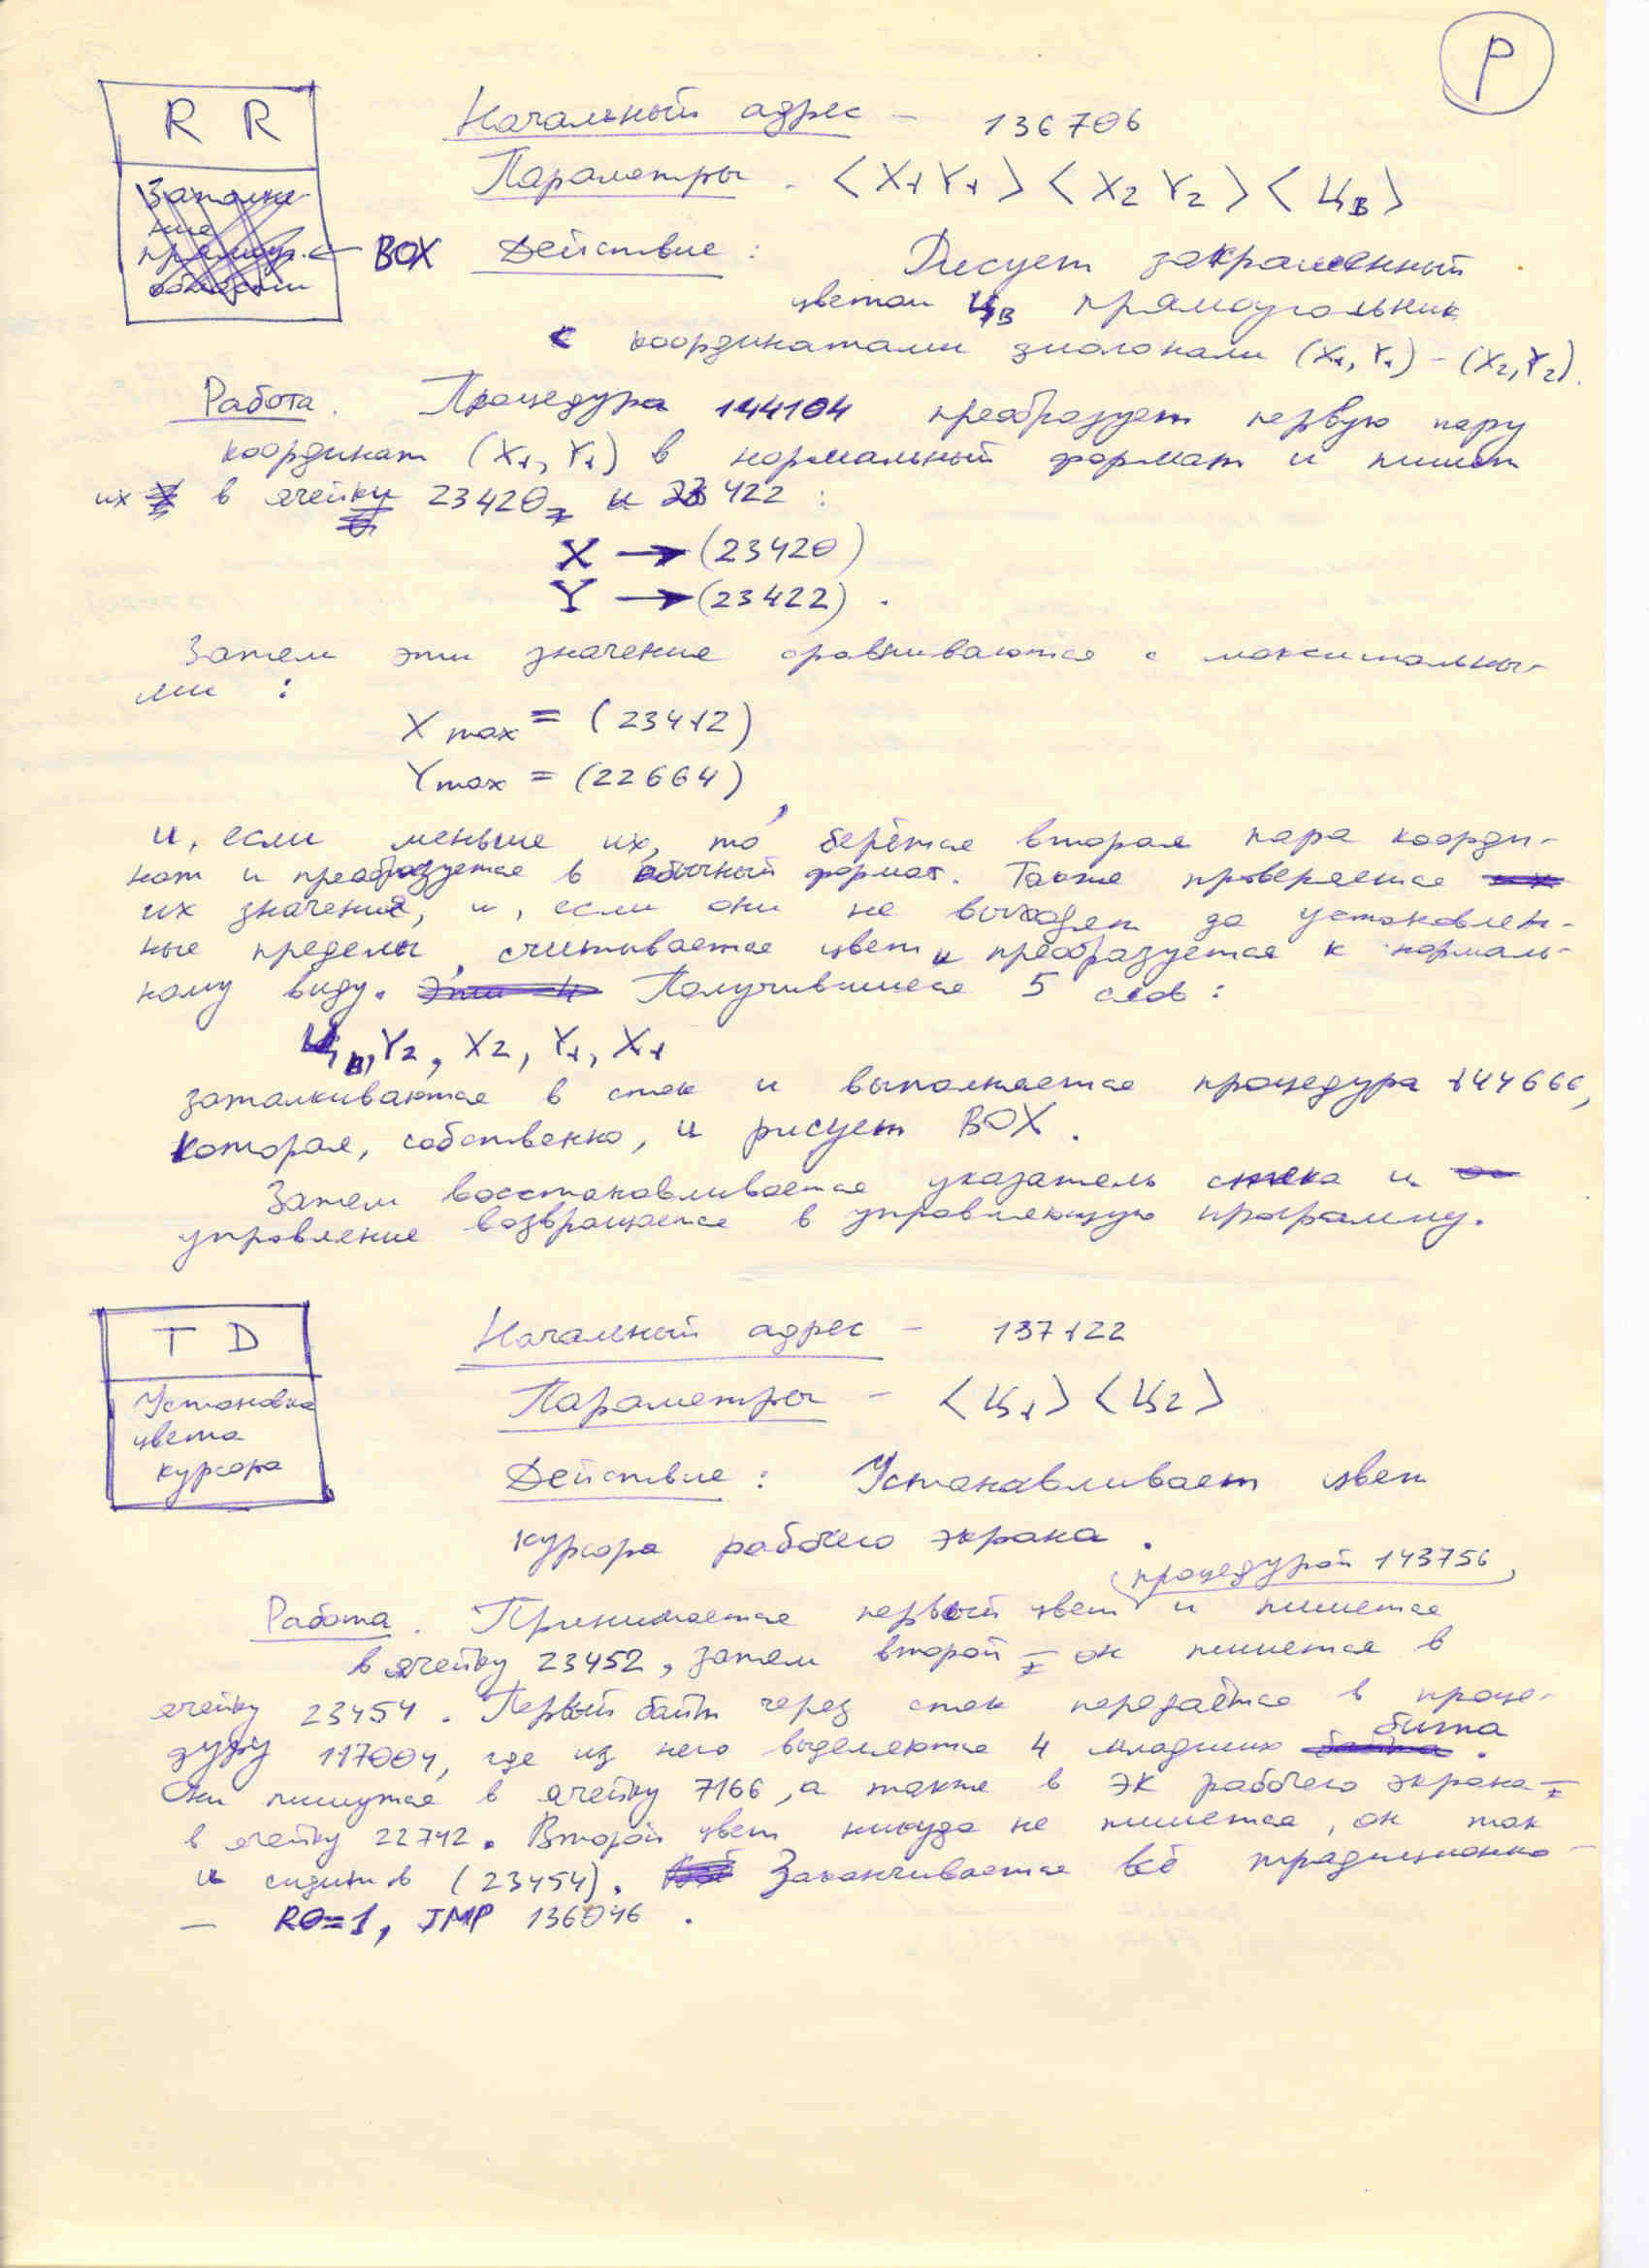 Р
R R
Начальный адрес - 136706
Параметры - <X1 Y1> <X2 Y2> <Цв>
Заполне-
ние
прямоуг.
области
← BOX
Действие : Рисует закрашенный
цветом Цв прямоугольник
с координатами диагонали (X1, Y1) - (X2, Y2).
Работа. Процедура 144104 преобразует первую пару
координат (X1, Y1) в нормальный формат и пишет
их в ячейку 23420 и 23422 :
X → (23420)
Y → (23422) .
Затем эти значения сравниваются с максимальны-
ми :
X max = (23412)
Y max = (22664)
и, если меньше их, то берётся вторая пара коорди-
нат и преобразуется в обычный формат. Также проверяется
их значение, и, если они не выходят за установлен-
ные пределы, считывается цвет и преобразуется к нормаль-
ному виду. Получившиеся 5 слов :
Цв, Y2, X2, Y1, X1
заталкиваются в стек и выполняется процедура 144666,
которая, собственно, и рисует BOX.
Затем восстанавливается указатель стека и
управление возвращается в управляющую программу.
T D
Начальный адрес - 137122
Установка
цвета
курсора
Параметры - <Ц1> <Ц2>
Действие : Устанавливает цвет
курсора рабочего экрана .
(процедурой 143756)
Работа. Принимается первый цвет и пишется
в ячейку 23452, затем второй - он пишется в
ячейку 23454. Первый байт через стек передаётся в проце-
дуру 117004, где из него выделяются 4 младших бита .
Они пишутся в ячейку 7166, а также в ЭК рабочего экрана -
в ячейку 22742. Второй цвет никуда не пишется, он так
и сидит в (23454). Заканчивается всё традиционно
— R0=1, JMP 136046 .